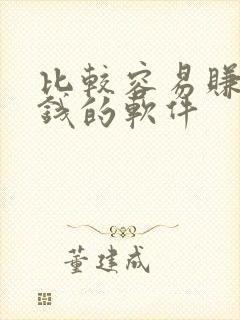 比較容易賺
錢的軟件
董建成